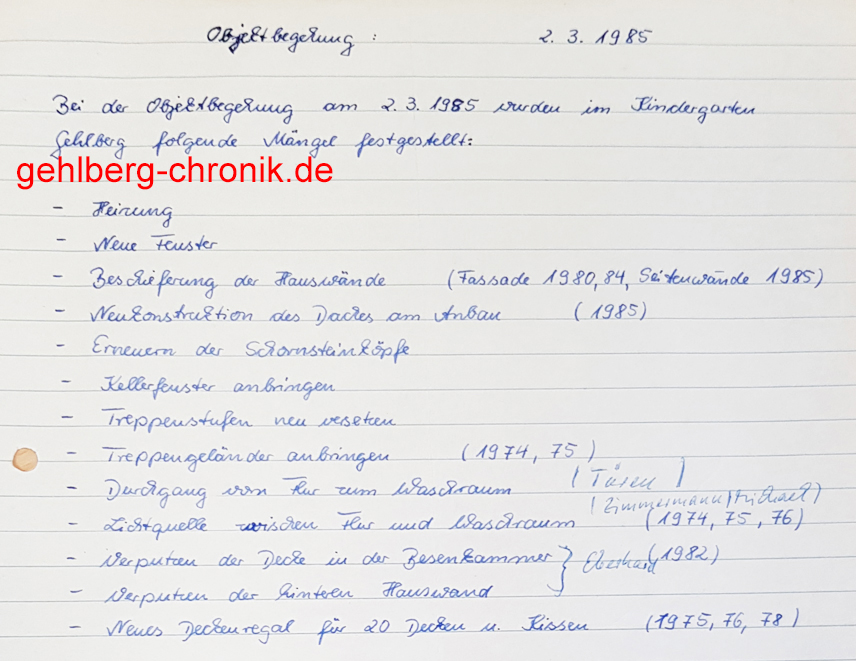 Objektbegehung : 2. 3. 1985
Bei der Objektbegehung am 2.3.1985 wurden im Kindergarten
Gehlberg folgende Mängel festgestellt:
gehlberg-chronik.de
- Heizung
- Neue Fenster
- Beschieferung der Hauswände (Fassade 1980, 84, Seitenwände 1985)
- Neukonstruktion des Daches am Anbau (1985)
- Erneuern der Schornsteinköpfe
- Kellerfenster anbringen
- Treppenstufen neu versetzen
- Treppengeländer anbringen (1974, 75)
- Durchgang vom Flur zum Waschraum (Türen)
(Zimmermann, Michael)
- Lichtquelle zwischen Flur und Waschraum (1974, 75, 76)
- Verputzen der Decke in der Besenkammer } Eberhard (1982)
- Verputzen der hinteren Hauswand
- Neues Deckenregal für 20 Decken u. Kissen (1975, 76, 78)